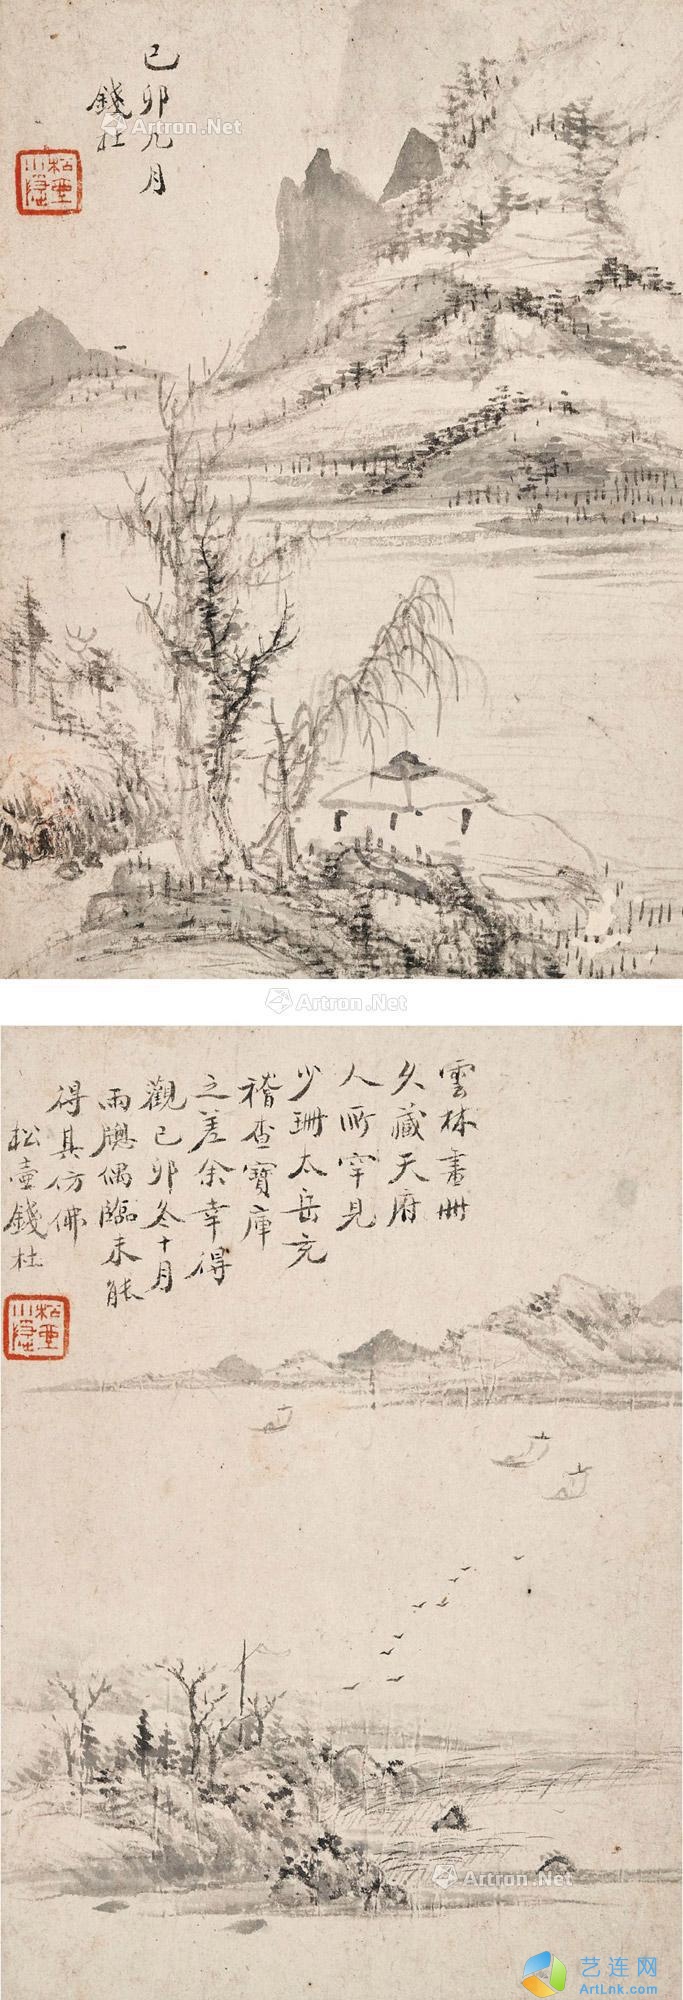 己卯九月
錢杜
松壺小隱
Artron.Net
Artron.Net
雲林畫冊
久藏天府
人所罕見
少珊太岳充
稽查寶庫
之差余幸得
觀己卯冬十月
雨牕偶臨未能
得其仿佛
松壺錢杜
松壺小隱
Artron.Net
艺连网
ArtLnk.com